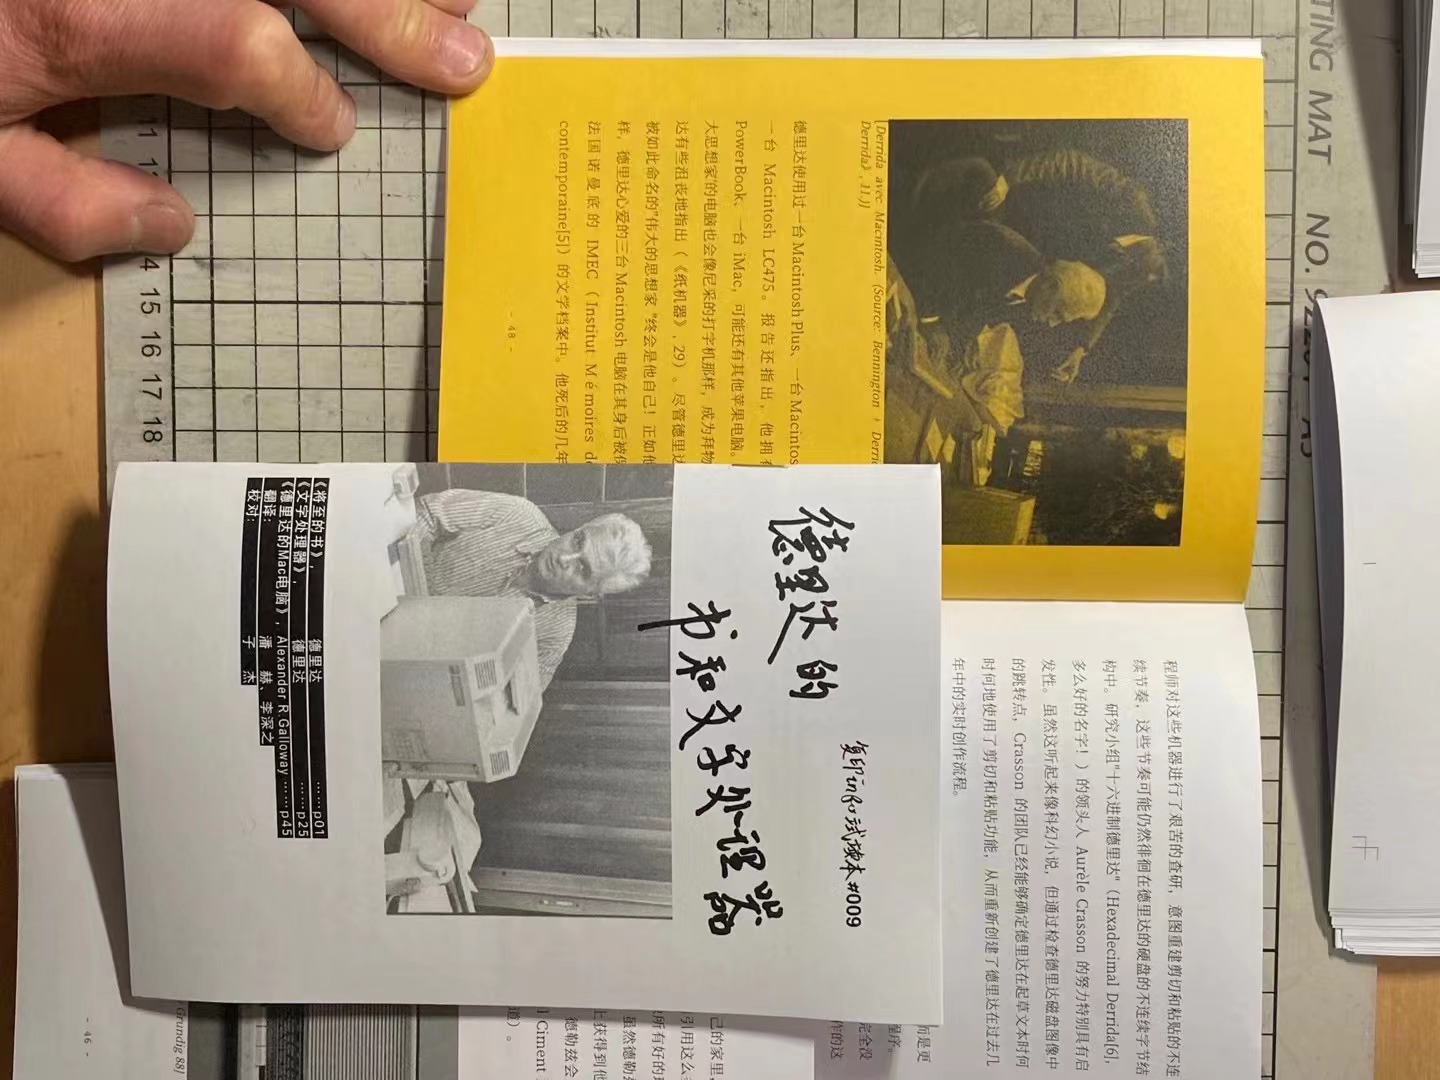 TING MAT NO. 9
11
14 15 16 17 18
Derrida avec Macintosh. (Source: Bennington + Derrida
Derrida》, 11.)]
德里达使用过一台Macintosh Plus、一台Macintos
一台 Macintosh LC475。报告还指出，他拥有
PowerBook、一台 iMac，可能还有其他苹果电脑。
大思想家'的电脑也会像尼采的打字机那样，成为拜物
达有些沮丧地指出（《纸机器》, 29）。尽管德里达
被如此命名的"伟大的思想家"终会是他自己！正如他
样，德里达心爱的三台 Macintosh 电脑在其身后被保
法国诺曼底的 IMEC（Institut Mémoires de
contemporaine[5]）的文学档案中。他死后的几年
- 48 -
程师对这些机器进行了艰苦的查研，意图重建剪切和粘贴的不连
续节奏，这些节奏可能仍然徘徊在德里达的硬盘的不连续字节结
构中。研究小组"十六进制德里达"（Hexadecimal Derrida[6],
多么好的名字！）的领头人 Aurèle Crasson 的努力特别具有启
发性。虽然这听起来像科幻小说，但通过检查德里达磁盘图像中
的跳转点，Crasson 的团队已经能够确定德里达在起草文本时何
时何地使用了剪切和粘贴功能，从而重新创建了德里达在过去几
年中的实时创作流程。
复印info试读本#009
德里达的
书和文字处理器
《将至的书》, 德里达 ……p01
《文字处理器》, 德里达 ……p25
《德里达的Mac电脑》, Alexander R Galloway ……p45
翻译: 潘 赫、李深之
校对: 子 杰
而是更
程序。
完全没
作的这
己的家里，
引用这么
所有好的
虽然德勒兹
上获得到他
德勒兹会
l Ciment
道）。
Grundig 88]
- 46 -